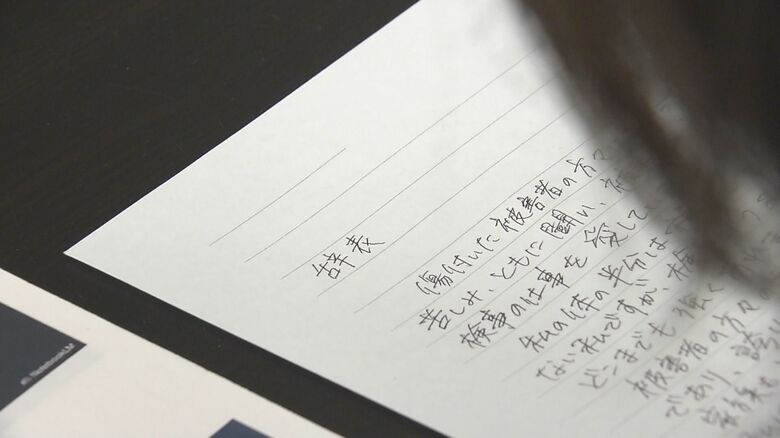 辞表
傷付いた被害者の方々
苦しみ、ともに闘い、
検事の仕事を愛して
私の体の半分は
ない私ですが、検
どこまでも強く
被害者の方々の
であり、誇
NotebookLM